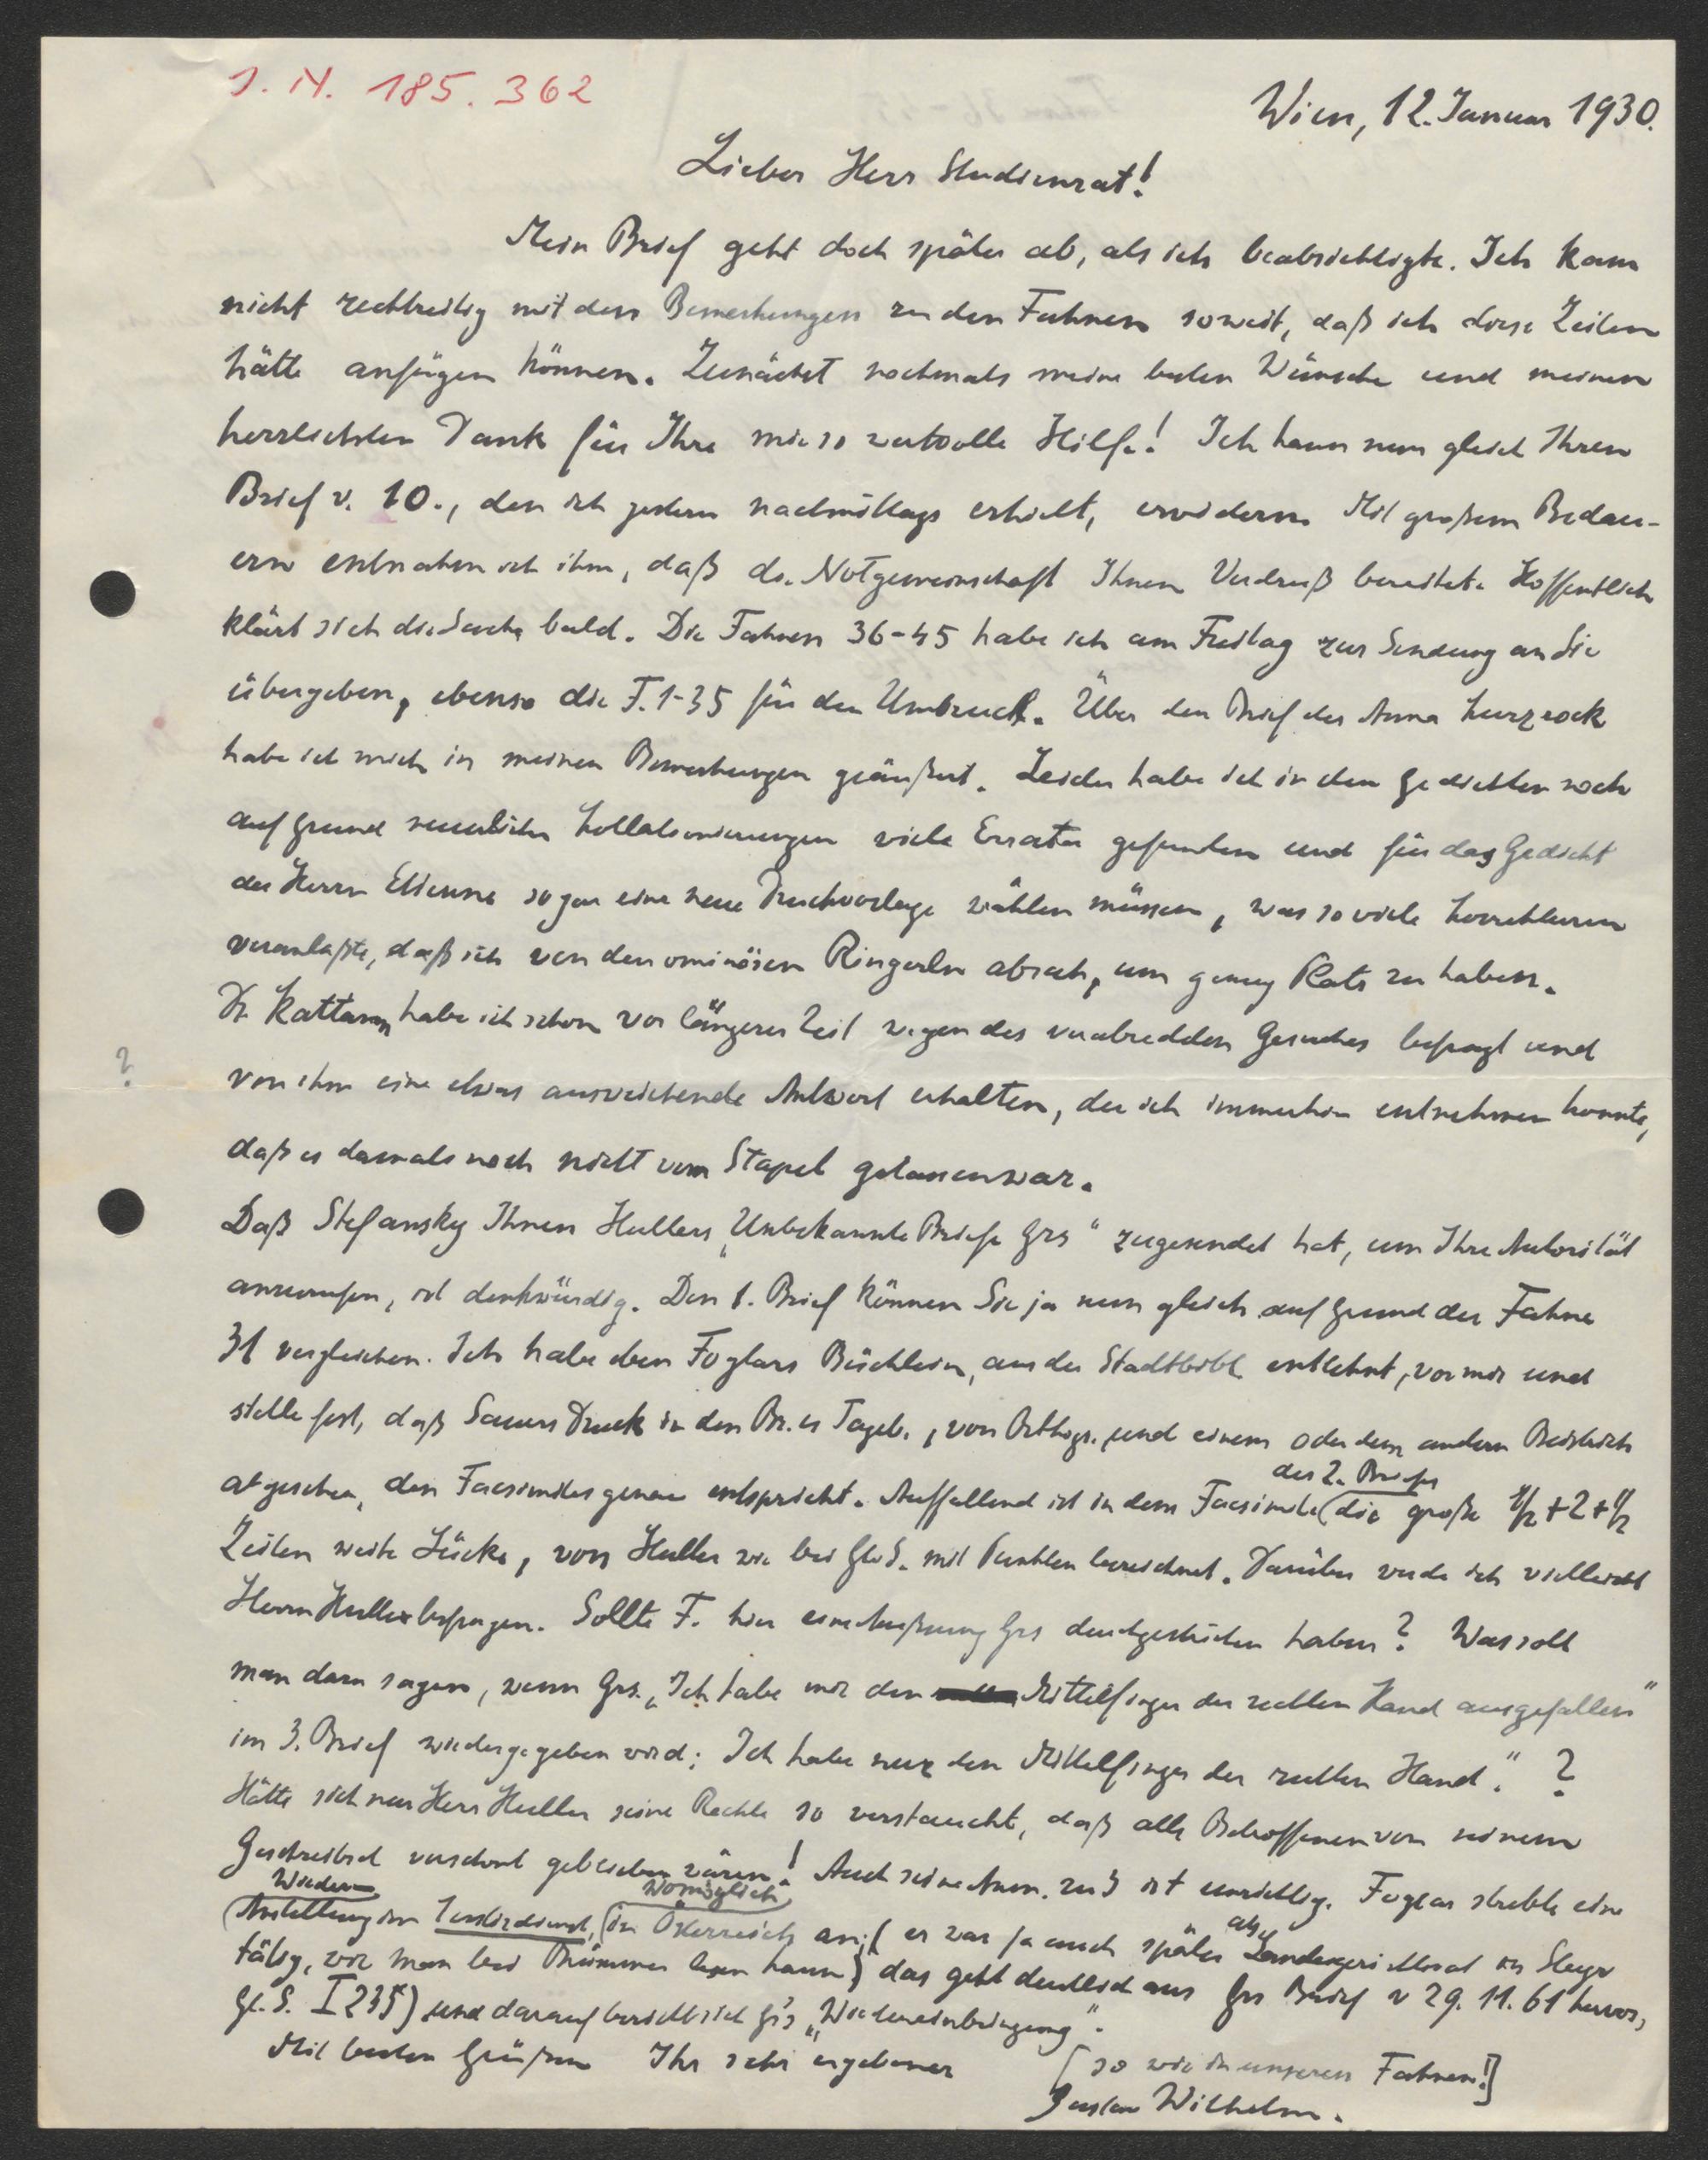 I. N. 185.362
Wien, 12. Januar 1930.
Lieber Herr Studienrat!
Mein Brief geht doch später ab, als ich beabsichtigte. Ich kam
nicht rechtzeitig mit den Bemerkungen zu den Fahnen soweit, daß ich diese Zeilen
hätte anfügen können. Zunächst nochmals meine besten Wünsche und meinen
herzlichsten Dank für Ihre mir so wertvolle Hilfe! Ich kann nun gleich Ihren
Brief v. 10., den ich gestern nachmittags erhielt, erwidern. Mit großem Bedau-
ern entnahm ich ihm, daß die Notgemeinschaft Ihnen Verdruß bereitet. Hoffentlich
klärt sich die Sache bald. Die Fahnen 36-45 habe ich am Freitag zur Sendung an Sie
übergeben, ebenso die F. 1-35 für den Umbruch. Über den Brief der Anna Kurzrock
habe ich mich in meinen Bemerkungen geäußert. Leider habe ich in den Gedichten noch
auf Grund neuerlicher Kollationierungen viele Errata gefunden und für das Gedicht
der Herrn Etienne sogar eine neue Druckvorlage wählen müssen, was so viele Korrekturen
veranlaßte, daß ich von den ominösen Ringerln absah, um genug Platz zu haben.
Dr. Kattann habe ich schon vor längerer Zeit wegen des verabredeten Gesuches befragt und
?
von ihm eine etwas ausweichende Antwort erhalten, der ich immerhin entnehmen konnte,
daß es damals noch nicht vom Stapel gelassen war.
Daß Stefansky Ihnen Hullers „Unbekannte Briefe Grs" zugesendet hat, um Ihre Autorität
anzurufen, ist denkwürdig. Den 1. Brief können Sie ja nun gleich auf Grund der Fahne
31 vergleichen. Ich habe eben Foglars Büchlein, aus der Stadtbibl. entlehnt, vor mir und
stelle fest, daß Sauers Druck in den Br. u Tageb., von Orthogr. und einem oder dem andern Beistrich
abgesehen, den Facsimiles genau entspricht. Auffallend ist in dem Facsimile (des 2. Briefes die große 1/2 + 2 + 1/2
Zeilen weite Lücke, von Huller wie bei Gl. S. mit Punkten bezeichnet. Darüber werde ich vielleicht
Herrn Huller befragen. Sollte F. hier eine Äußerung Grs durchgestrichen haben? Was soll
man dazu sagen, wenn Grs. „Ich habe mir den Mittelfinger der rechten Hand ausgefallen"
im 3. Brief wiedergegeben wird: Ich habe nur den Mittelfinger der rechten Hand." ?
Hätte sich nur Herr Huller seine Rechte so verstaucht, daß alle Betroffenen von seinem
Geschreibsel verschont geblieben wären! Auch seine Anm. zu 3 ist unrichtig. Foglar strebte eine
(Wieder-Anstellung im Justizdienst, (womöglich in Österreich an; (er war ja auch später als Landesgerichtsrat in Steyr
tätig, wie man bei Trimmel lesen kann) das geht deutlich aus Grs Brief v 29. 11. 61 hervor,
Gl. S. I 235) und darauf bezieht sich Gr's „Wiedereinbringung".
[so wie in unseren Fahnen!]
Mit besten Grüßen Ihr sehr ergebener
Gustav Wilhelm.